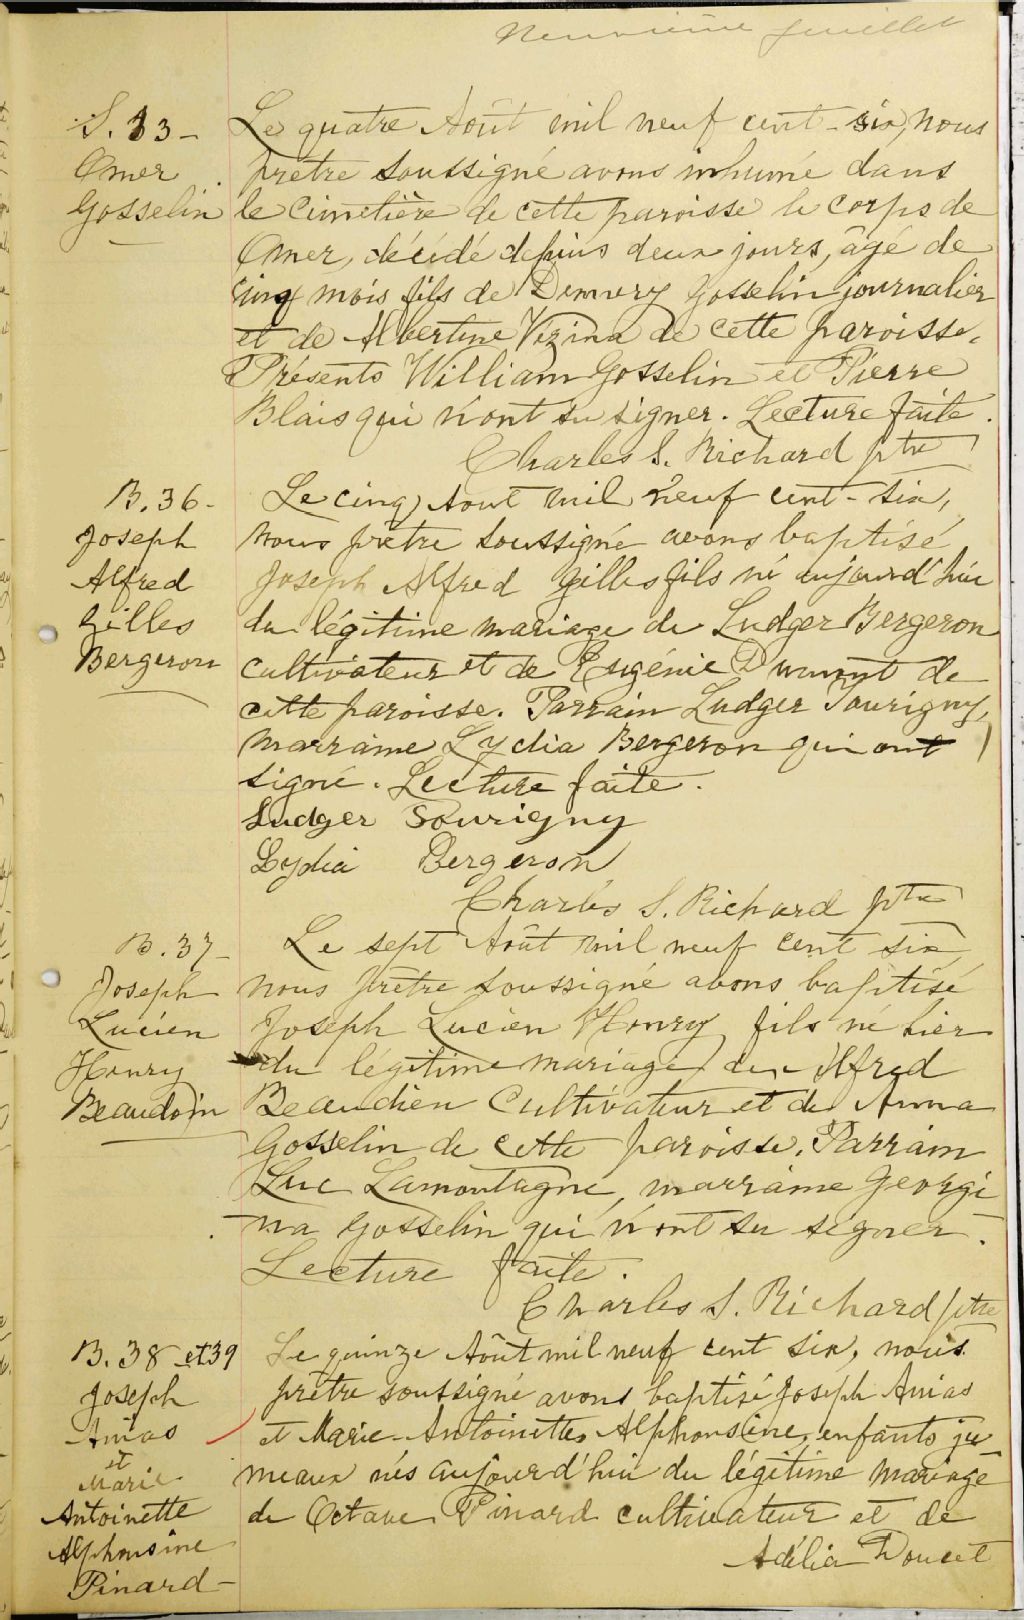 Neuvième feuillet
S. 33 -
Omer
Gosselin
Le quatre Août mil neuf cent-six, nous
prêtre soussigné avons inhumé dans
le cimetière de cette paroisse le corps de
Omer, décédé depuis deux jours, âgé de
cinq mois fils de Gosselin journalier
et de Albertine Vézina de cette paroisse.
Présents William Gosselin et Pierre
Blais qui n'ont su signer. Lecture faite.
Charles S. Richard ptre
B. 36 -
Joseph
Alfred
Gilles
Bergeron
Le cinq Aout mil neuf cent-six,
nous prêtre soussigné avons baptisé
Joseph Alfred Gilles fils né aujourd'hui
du légitime mariage de Ludger Bergeron
cultivateur et de Eugénie Dumont de
cette paroisse. Parrain Ludger Tourigny,
marraine Lydia Bergeron qui ont
signé. Lecture faite.
Ludger Tourigny
Lydia Bergeron
Charles S. Richard ptre
B. 37 -
Joseph
Lucien
Henry
Beaudoin
Le sept Août mil neuf cent six,
nous prêtre soussigné avons baptisé
Joseph Lucien Henry fils né hier
du légitime mariage de Alfred
Cultivateur et de Anna
Gosselin de cette paroisse. Parrain
Luc Lamontagne, marraine Georgi
na Gosselin qui n'ont su signer.
Lecture faite.
Charles S. Richard ptre
B. 38 et 39
Joseph
Anias
et
Marie
Antoinette
Alphonsine
Pinard -
Le quinze Août mil neuf cent six, nous
prêtre soussigné avons baptisé Joseph Anias
et Marie-Antoinette Alphonsine, enfants ju
meaux nés aujourd'hui du légitime mariage
de Octave Pinard cultivateur et de
Adélia Doucet